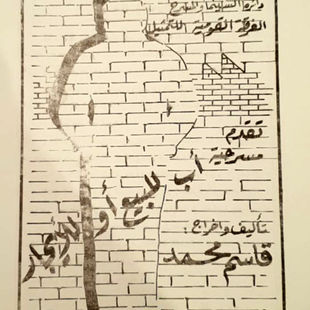 دائرة السينما والمسرح
الفرقة القومية للتمثيل
تقدم
مسرحية
أب للبيع أو للأيجار
تأليف واخراج :
قاسم محمد